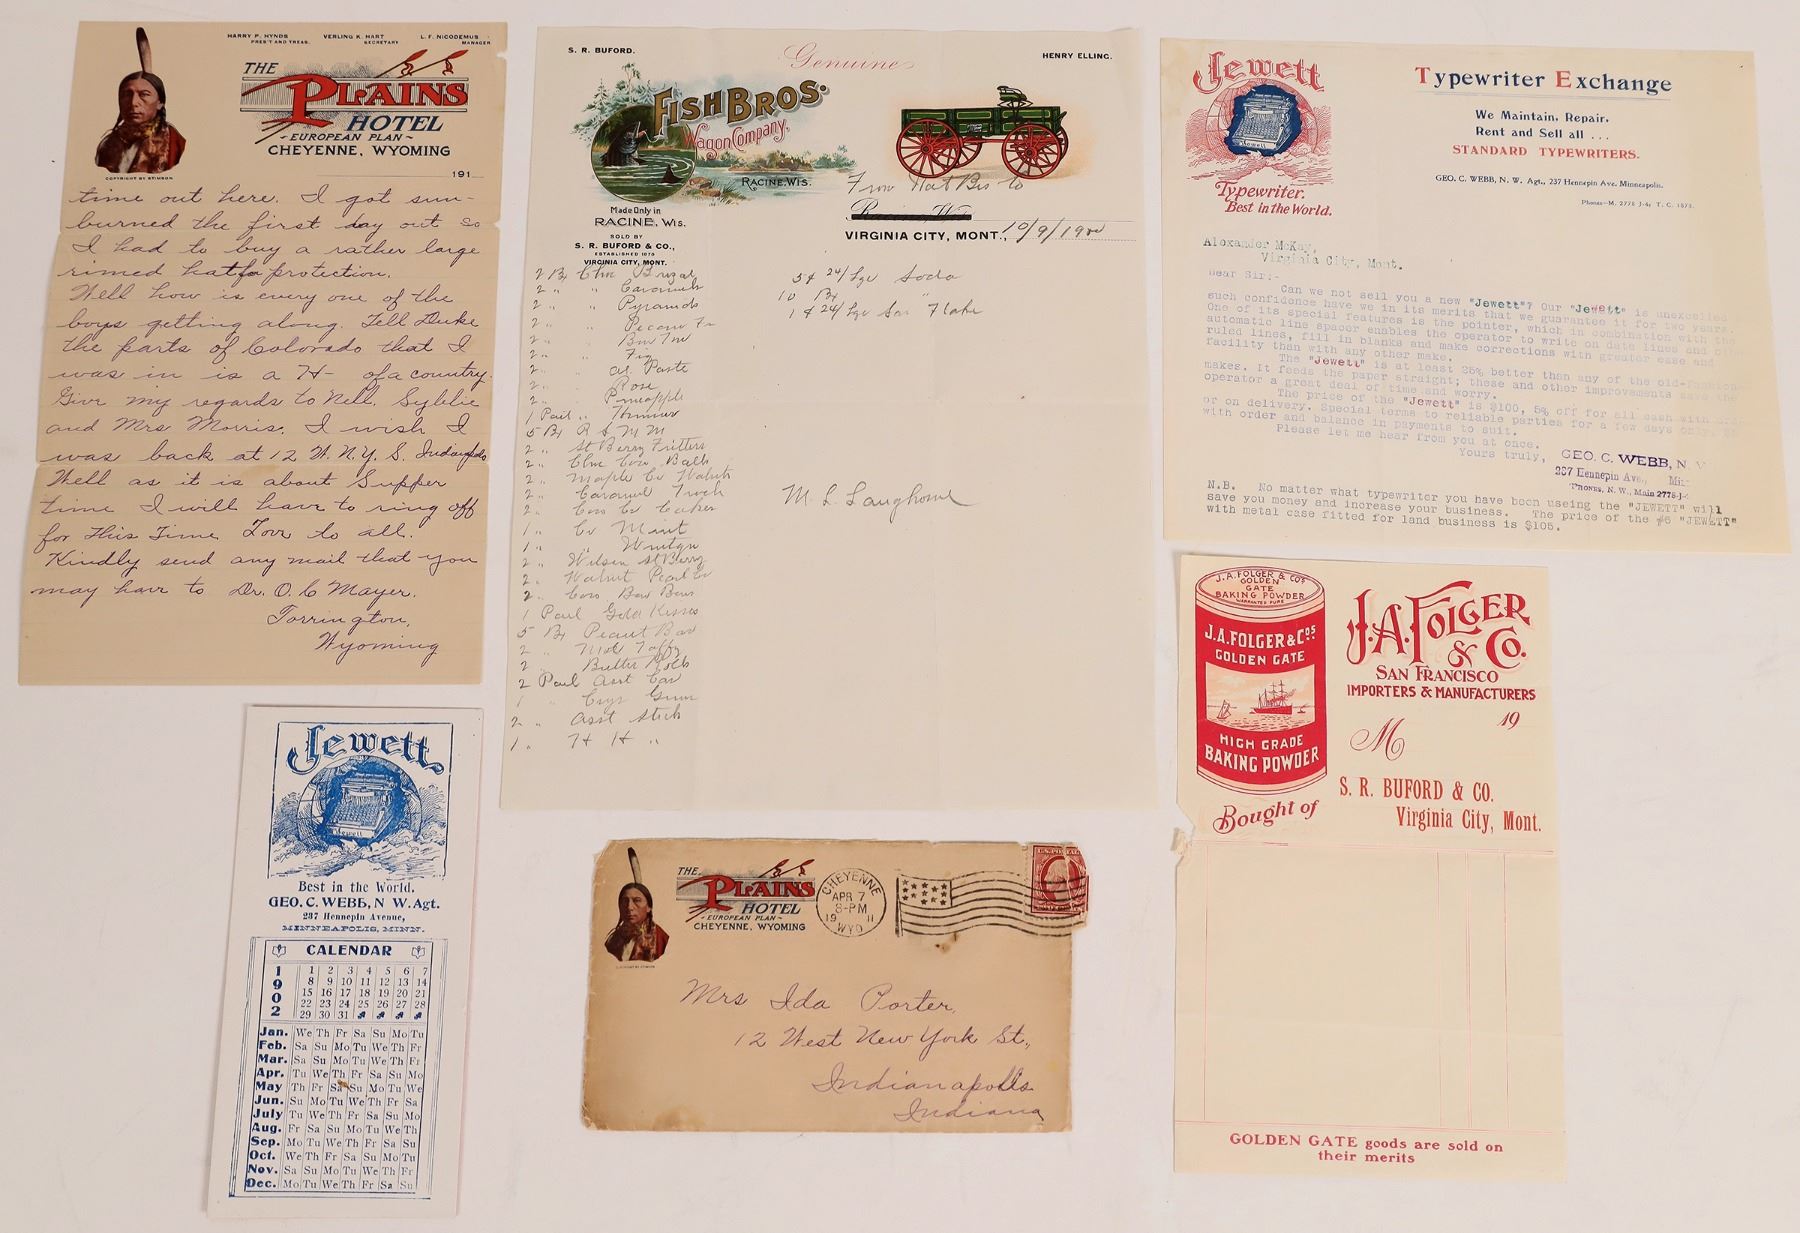 HARRY P. HYNDS
PRES'T AND TREAS.
VERLING K. HART
SECRETARY
L. F. NICODEMUS
MANAGER
THE
PLAINS
HOTEL
- EUROPEAN PLAN -
CHEYENNE, WYOMING
COPYRIGHT BY STIMSON
191
time out here. I got sun-
burned the first day out so
I had to buy a rather large
rimed hat for protection.
Well how is every one of the
boys getting along. Tell Duke
the parts of Colorado that I
was in is a H- of a country.
Give my regards to Nell,
and Mrs Morris. I wish I
was back at 12 W. N.Y. S. Indianapolis
Well as it is about Supper
time I will have to ring off
for this Time Love to all.
Kindly send any mail that you
may have to Dr. O. C Mayer.
Torrington,
Wyoming
S. R. BUFORD.
Genuine
HENRY ELLING.
FISH BROS.
Wagon Company,
RACINE, WIS.
Made Only in
RACINE, WIS.
SOLD BY
S. R. BUFORD & CO.,
ESTABLISHED 1875
VIRGINIA CITY, MONT.
From Nat Bis Co
VIRGINIA CITY, MONT., 10/9/1900
2 Bx
2 " " Caramels
2 " " Pyramids
2 "
2 "
2 " Fig
2 " Al. Paste
2 " Rose
2 " Pineapple
1 Pail "
5 Bx R S M M
2 " St Berry Fritters
2 " Balls
2 " Maple
2 " Caramel
2 " Cakes
1 " Mint
1 "
2 " Wilsen St Berry
2 " Walnut
2 "
1 Pail Gold Kisses
5 Bx Peanut Bar
2 " Taffy
2 " Butter
2 Pail Asst
1 " Gum
2 " Asst Stick
1 " H H "
5 ¢ 24/ Lge Soda
10 Bx "
1 ¢ 24/ Lge Flake
M. L. Laughorne
Jewett
Typewriter.
Best in the World.
Typewriter Exchange
We Maintain, Repair,
Rent and Sell all ...
STANDARD TYPEWRITERS.
GEO. C. WEBB, N. W. Agt., 237 Hennepin Ave. Minneapolis.
Phones-M. 2778 J-4; T. C. 1873.
Jewell
Alexander McKay,
Virginia City, Mont.
Dear Sir:-
Can we not sell you a new "Jewett"? Our "Jewett" is unexcelled
such confidence have we in its merits that we guarantee it for two years.
One of its special features is the pointer, which in combination with the
automatic line spacer enables the operator to write on date lines and
ruled lines, fill in blanks and make corrections with greater ease and
facility than with any other make.
The "Jewett" is at least 25% better than any of the old-fashion
makes. It feeds the paper straight; these and other improvements save the
operator a great deal of time and worry.
The price of the "Jewett" is $100, 5% off for all cash with
or on delivery. Special terms to reliable parties for a few days only,
with order and balance in payments to suit.
Please let me hear from you at once.
Yours truly, GEO. C. WEBB, N. W
237 Hennepin Ave.,
PHONES, N. W. Main 2778-J-4
N.B. No matter what typewriter you have been useing the "JEWETT" will
save you money and increase your business. The price of the #6 "JEWETT"
with metal case fitted for land business is $105.
Jewett
Jewell
Best in the World.
GEO. C. WEBB, N W. Agt.
237 Hennepin Avenue,
MINNEAPOLIS, MINN.
CALENDAR
1902
1 2 3 4 5 6 7
8 9 10 11 12 13 14
15 16 17 18 19 20 21
22 23 24 25 26 27 28
29 30 31
Jan. We Th Fr Sa Su Mo Tu
Feb. Sa Su Mo Tu We Th Fr
Mar. Sa Su Mo Tu We Th Fr
Apr. Tu We Th Fr Sa Su Mo
May Th Fr Sa Su Mo Tu We
Jun. Su Mo Tu We Th Fr Sa
July Tu We Th Fr Sa Su Mo
Aug. Fr Sa Su Mo Tu We Th
Sep. Mo Tu We Th Fr Sa Su
Oct. We Th Fr Sa Su Mo Tu
Nov. Sa Su Mo Tu We Th Fr
Dec. Mo Tu We Th Fr Sa Su
THE
PLAINS
HOTEL
- EUROPEAN PLAN -
CHEYENNE, WYOMING
COPYRIGHT BY STIMSON
CHEYENNE
APR 7
8-PM
19 11
WYO
U.S. POSTAGE
Mrs Ida Porter,
12 West New York St.,
Indianapolis
Indiana
J.A. FOLGER & CO'S
GOLDEN
GATE
BAKING POWDER
WARRANTED PURE
J.A. FOLGER & COS
GOLDEN GATE
HIGH GRADE
BAKING POWDER
J.A. FOLGER
& CO.
SAN FRANCISCO
IMPORTERS & MANUFACTURERS
19
M
Bought of
S. R. BUFORD & CO.
Virginia City, Mont.
GOLDEN GATE goods are sold on
their merits